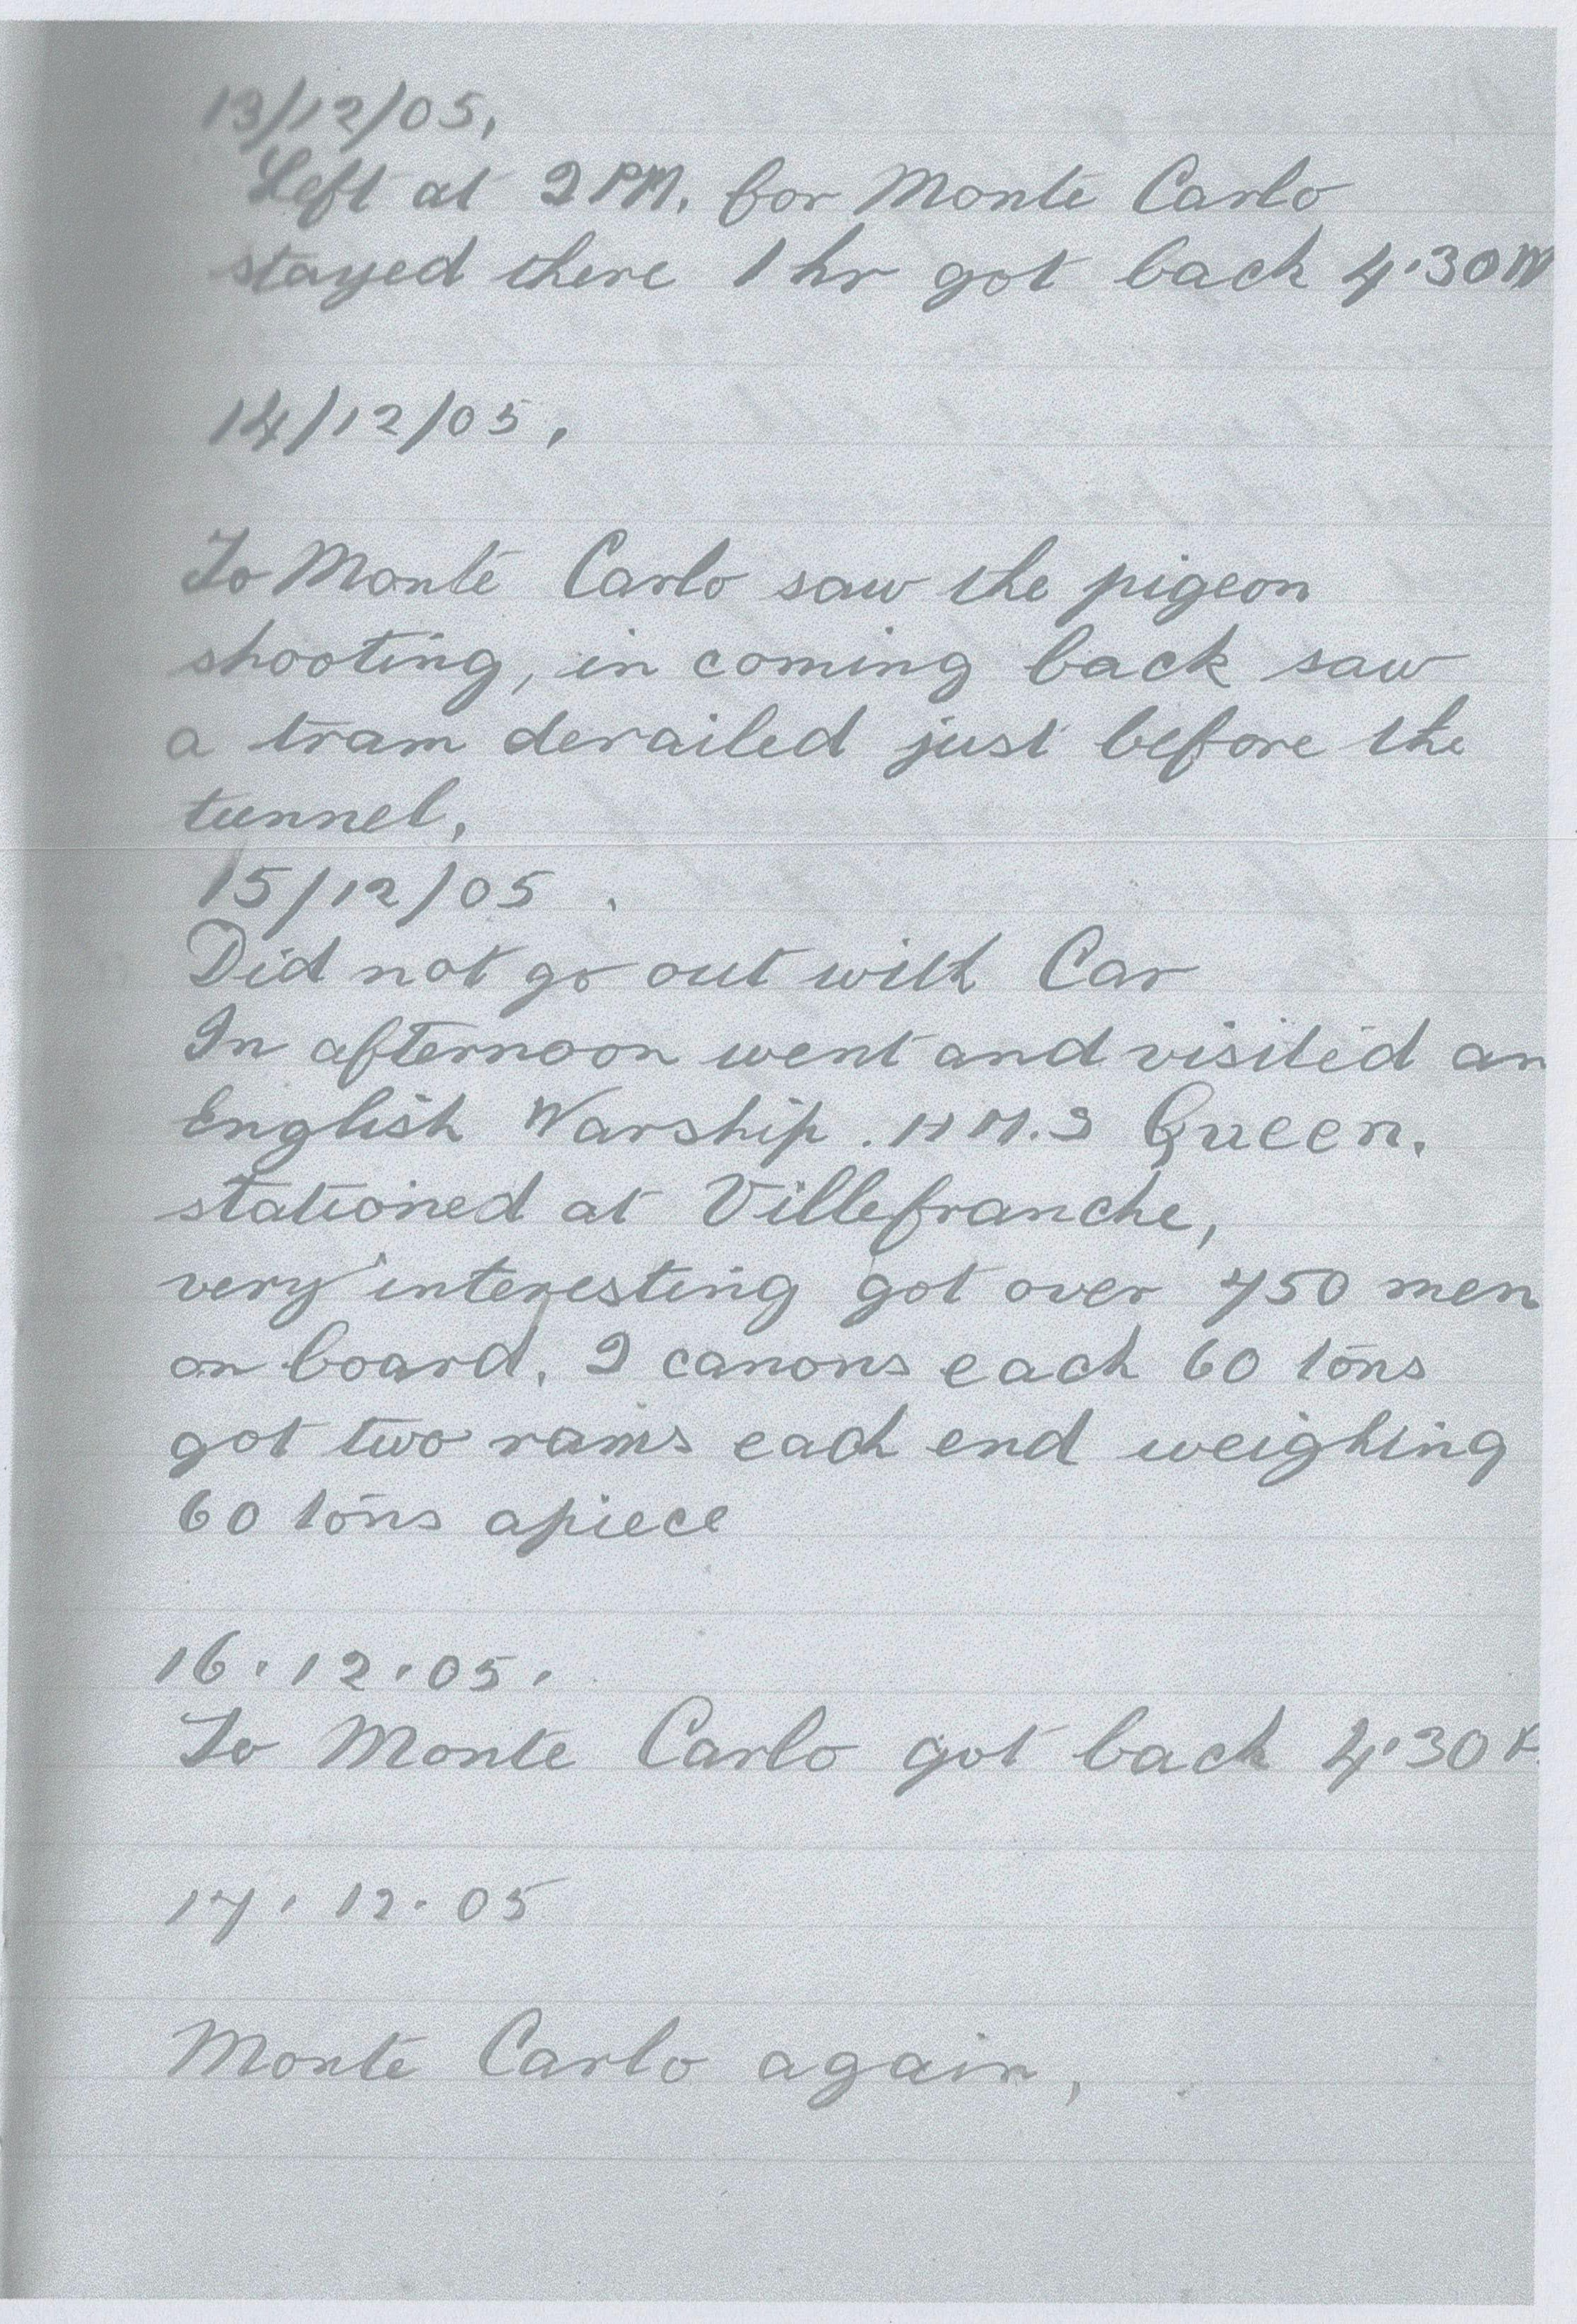 13/12/05,
Left at 2 PM. for Monte Carlo
stayed there 1 hr got back 4.30
14/12/05,
To Monte Carlo saw the pigeon
shooting, in coming back saw
a tram derailed just before the
tunnel,
15/12/05.
Did not go out with Car
In afternoon went and visited an
English Warship. H M.S Queen.
stationed at Villefranche,
very interesting got over 750 men
on board. 2 canons each 60 tons
got two rams each end weighing
60 tons apiece
16.12.05.
To Monte Carlo got back 4.30
17.12.05
Monte Carlo again,